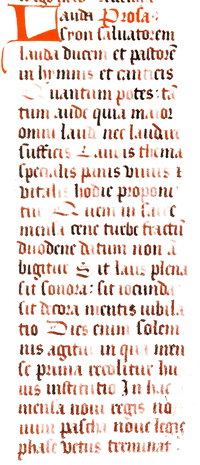 Lauda Prosa
syon saluatorem
lauda ducem et pastorē
in hymnis et canticis
Quantum potes: tā
tum aude quia maior
omni laud nec laudare
sufficis Laudis thema
specialis panis viuus &
vitalis hodie proponi
tur Quem in sacre
mensa cene turbe fractū
duodene datum non ā
bigitur Sit laus plena
sit sonora: sit iocunda
sit decora mentis iubila
tio Dies enim solem
nis agitur in qua men
se prima recolitur hu
ius institutio In hac
mensa noui regis no
uum pascha noue legis
phase vetus terminat